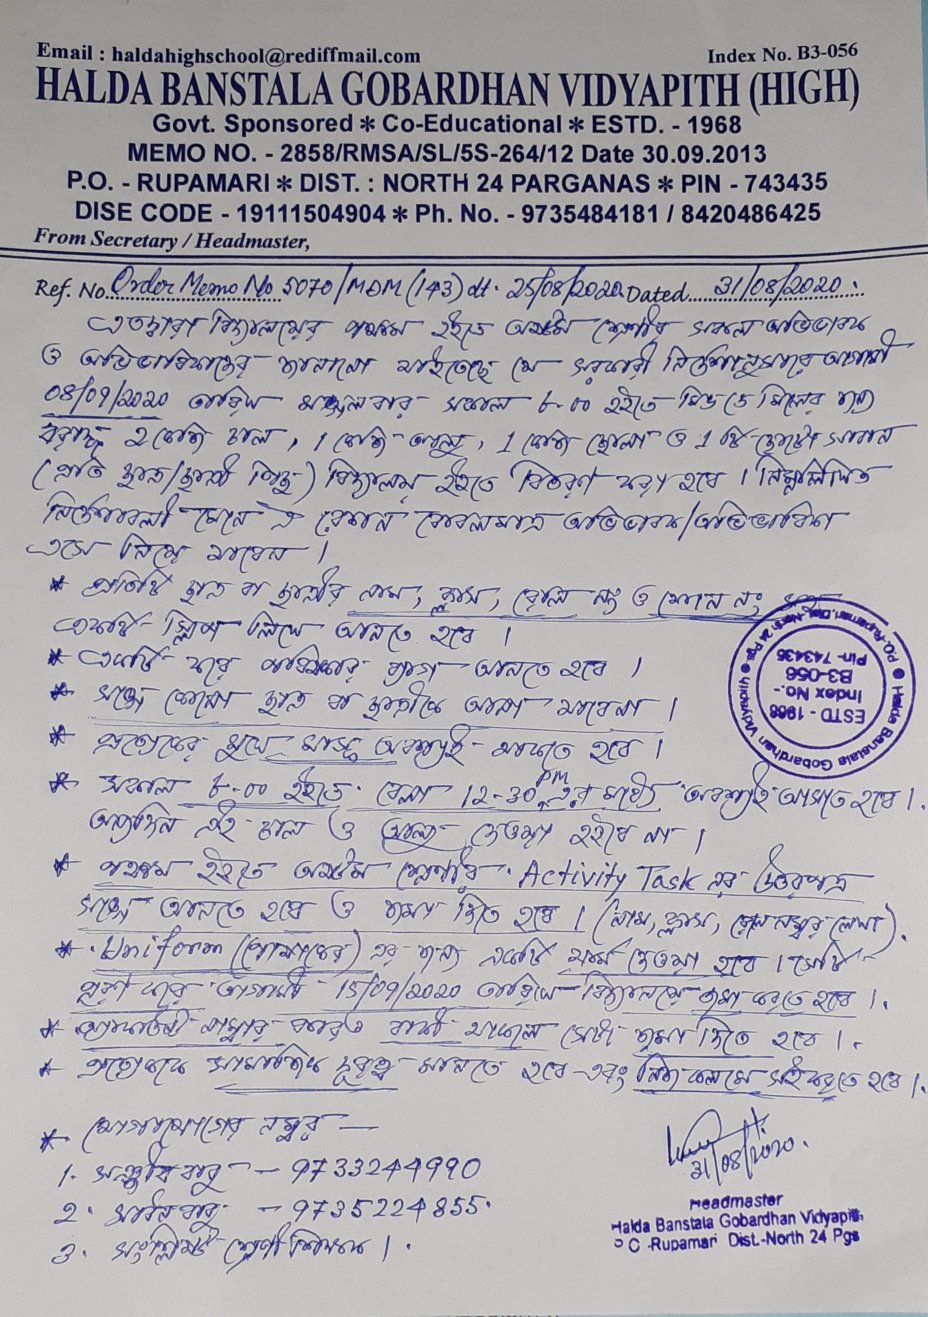 Email : haldahighschool@rediffmail.com Index No. B3-056
HALDA BANSTALA GOBARDHAN VIDYAPITH (HIGH)
Govt. Sponsored * Co-Educational * ESTD. - 1968
MEMO NO. - 2858/RMSA/SL/5S-264/12 Date 30.09.2013
P.O. - RUPAMARI * DIST. : NORTH 24 PARGANAS * PIN - 743435
DISE CODE - 19111504904 * Ph. No. - 9735484181 / 8420486425
From Secretary / Headmaster,
Ref. No. Order Memo No 5070/MDM (143) dt. 25/08/2020 Dated 31/08/2020.
এতদ্বারা বিদ্যালয়ের পঞ্চম হইতে অষ্টম শ্রেণীর সকল অভিভাবক
ও অভিভাবিকাদের জানানো যাইতেছে যে সরকারী নির্দেশানুসারে আগামী
08/09/2020 তারিখ মঙ্গলবার সকাল ৮-০০ হইতে মিড ডে মিলের জন্য
বরাদ্দ ২ কেজি চাল, 1 কেজি আলু, 1 কেজি ছোলা ও 1 টি সাবান
(প্রতি ছাত্র/ছাত্রী পিছু) বিদ্যালয় হইতে বিতরণ করা হবে। নিম্নলিখিত
নির্দেশাবলী মেনে কেবলমাত্র অভিভাবক/অভিভাবিকা
এসে নিয়ে যাবেন।
* প্রতিটি ছাত্র বা ছাত্রীর নাম, ক্লাস, রোল নং ও ফোন নং সহ
একটি স্লিপ লিখে আনতে হবে।
* একটি করে পরিষ্কার ব্যাগ আনতে হবে।
* সঙ্গে কোনো ছাত্র বা ছাত্রীকে আনা যাবেনা।
* প্রত্যেকের মুখে মাস্ক অবশ্যই থাকতে হবে।
* সকাল ৮-০০ হইতে বেলা 12-30 pm এর মধ্যে অবশ্যই আসতে হবে।
অন্যদিন এই চাল ও আলু দেওয়া হইবে না।
* পঞ্চম হইতে অষ্টম শ্রেণীর Activity Task এর উত্তরপত্র
সঙ্গে আনতে হবে ও জমা দিতে হবে। (নাম, ক্লাস, রোল নম্বর লেখা).
* Uniform (পোষাকের) এর জন্য একটি ফর্ম দেওয়া হবে। সেটি
পূরণ করে আগামী 15/09/2020 তারিখে বিদ্যালয়ে জমা করতে হবে।
* কারও বাকী থাকলে সেটা জমা দিতে হবে।
* প্রত্যেককে সামাজিক দূরত্ব মানতে হবে এবং নিজ কলমে সই করতে হবে।
* যোগাযোগের নম্বর —
1. সঞ্জীব বাবু - 9733244990
২. বাবু - 9735224855.
৩. সংশ্লিষ্ট শ্রেণী শিক্ষক।
Halda Banstala Gobardhan Vidyapith
P.O.-Rupamari, Dist.-North 24 Pgs
ESTD - 1968
Index No.-
B3-056
Pin- 743435
31/08/2020.
Headmaster
Halda Banstala Gobardhan Vidyapith
Rupamari Dist.-North 24 Pgs